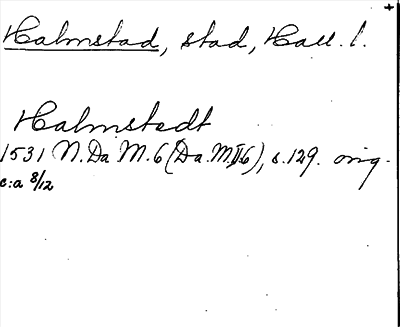 Halmstad, stad, Hall. l.
Halmstedt
1531 N. Da M. 6 (Da. M. II 6), s. 129. orig.
c:a 8/12